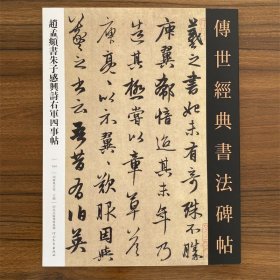 傳世經典書法碑帖
羲之書始未有奇殊不勝
庾翼郗愔迨其末年乃
造其極嘗以章草答
庾亮〻以示翼〻歎服因與
羲之書云吾昔有伯英
趙孟頫書朱子感興詩右軍四事帖